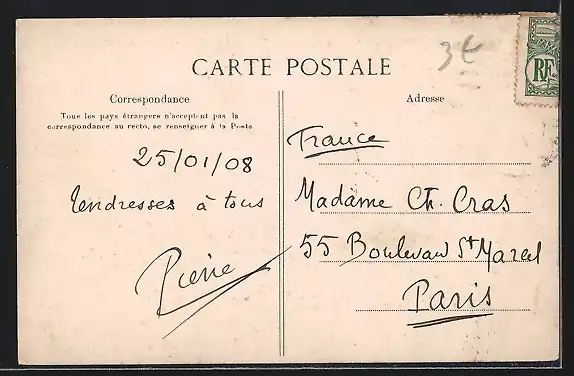 3€
CARTE POSTALE
RF
Correspondance
Tous les pays étrangers n'acceptent pas la
correspondance au recto, se renseigner à la Poste
25/01/08
Tendresses à tous
Pierre
Adresse
France
Madame Ch. Cras
55 Boulevard St Marcel
Paris